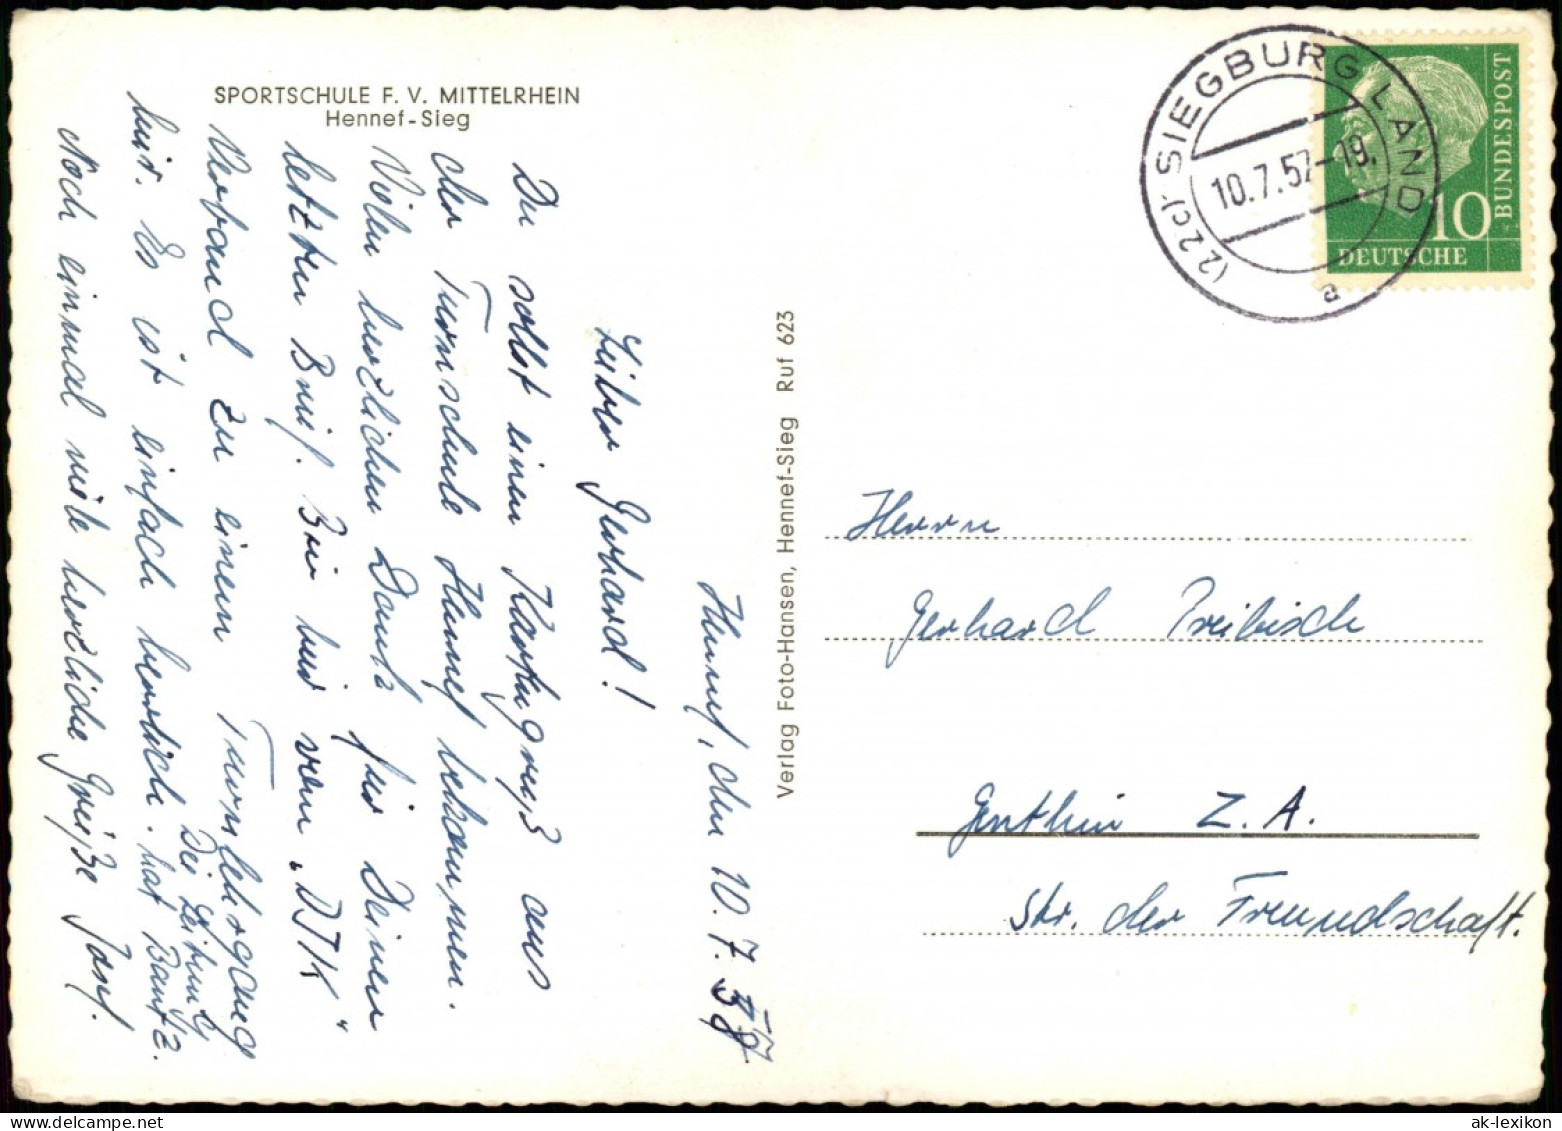 SPORTSCHULE F. V. MITTELRHEIN
Hennef-Sieg
Hennef, den 10.7.57
Lieber Gerhard!
Du sollst einen Kartengruß aus
der Turnschule Hennef bekommen.
Vielen herzlichen Dank für Deinen
letzten Brief. Bin hier vom „DJK“
Verband zu einem Turnlehrgang
hier. Es ist einfach herrlich.
Die Leitung
hat Bantz.
Noch einmal viele herzliche Grüße Josef.
Verlag Foto-Hansen, Hennef-Sieg Ruf 623
(22c) SIEGBURG LAND
10.7.57-19.
a
10
BUNDESPOST
DEUTSCHE
Herrn
Gerhard Preibisch
Genthin Z. A.
Str. der Freundschaft.
ak-lexikon